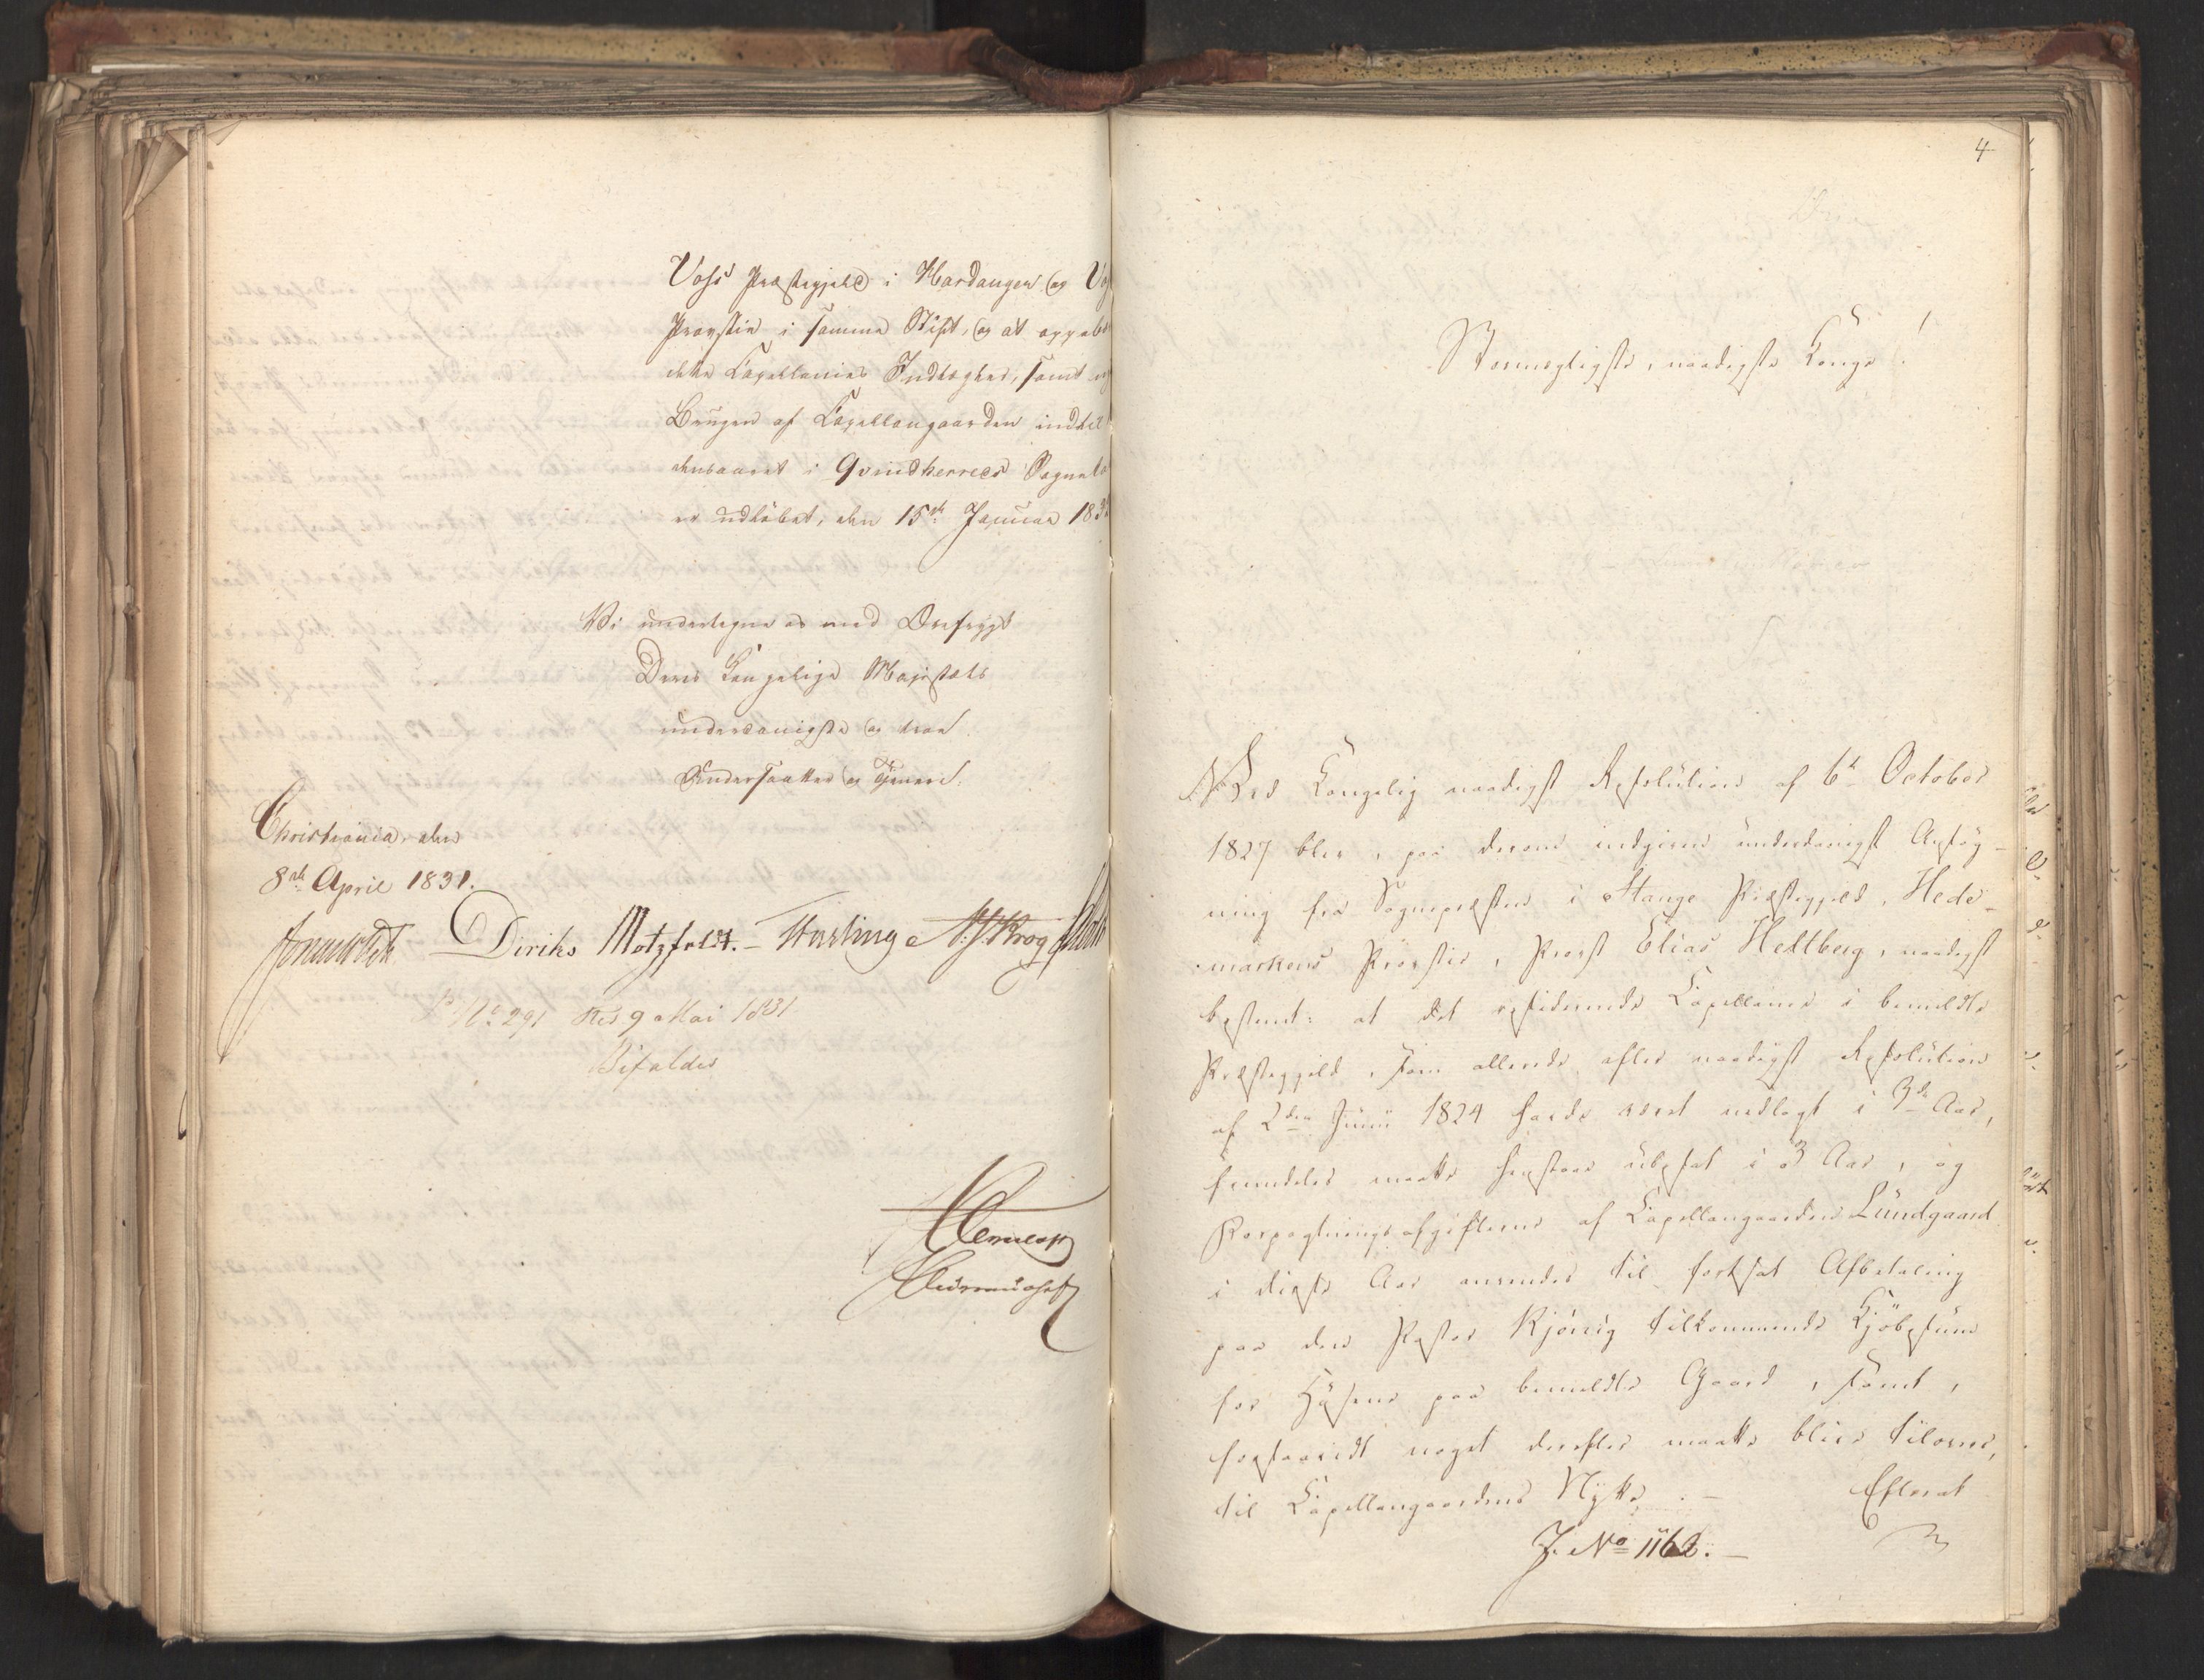 Voss Præstegjeld i Hardanger og Vos
Provstie i samme Stift, og at oppebær
dette Capellanies Indtægter, samt og
Brugen af Capellangaarden indtil
denaaret i Qvindherreds Sognek
er udløbet, den 15de Januar 183
Vi undertegne os med Ærefrygt
Deres Kongelige Majestæts
underdanigste og troe
Undersaatter og Tjenere.
Christiania, den
8de April 1831.
Diriks Motzfeldt. Fasting
No 291 Res 9 Mai 1831
Bifaldes
4
Stormægtigste, naadigste Konge!
Ved Kongelig naadigst Resolution af 6te October
1827 blev, paa derom indgiven underdanigst Ansøg-
ning fra Sognepræsten i Stange Præstegjeld, Hede-
markens Provstie, Provst Elias Heltberg, naadigst
bestemt: at det residerende Capellanie i bemeldte
Præstegjeld, som allerede efter naadigst Resolution
af 2den Junii 1824 havde været nedlagt i 3de Aar,
fremdeles maatte henstaae ubesat i 3 Aar, og
Forpagtningsafgifterne af Capellangaarden Lundgaard
i disse Aar anvendes til fortsat Afbetaling
paa den Pastor Kjönig tilkommende Kjöbesum
for Husene paa bemeldte Gaard, samt,
forsaavidt noget derefter maatte blive tilovers,
til Capellangaardens Nytte. –
Efterat
J. No 1162. –